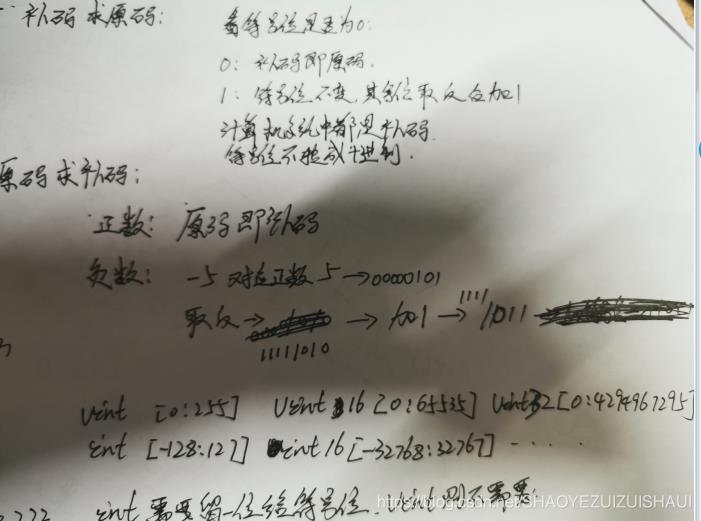 补码 求原码: 看符号位是否为0:
0: 补码即原码.
1: 符号位不变,其余位取反在加1
计算机系统中都是补码.
符号位不换成十进制.
原码求补码:
正数: 原码即补码
负数: -5 对应正数 5→00000101
取反→ → 加1 → 1111 1011
11111010
Uint [0:255] Uint 16 [0:65535] Uint32[0:4294967295]
int [-128:127] int16[-32768:32767] ....
int 需要留一位给符号位. Uint则不需要.
https://blog.csdn.net/SHAOYEZUIZUISHAUI